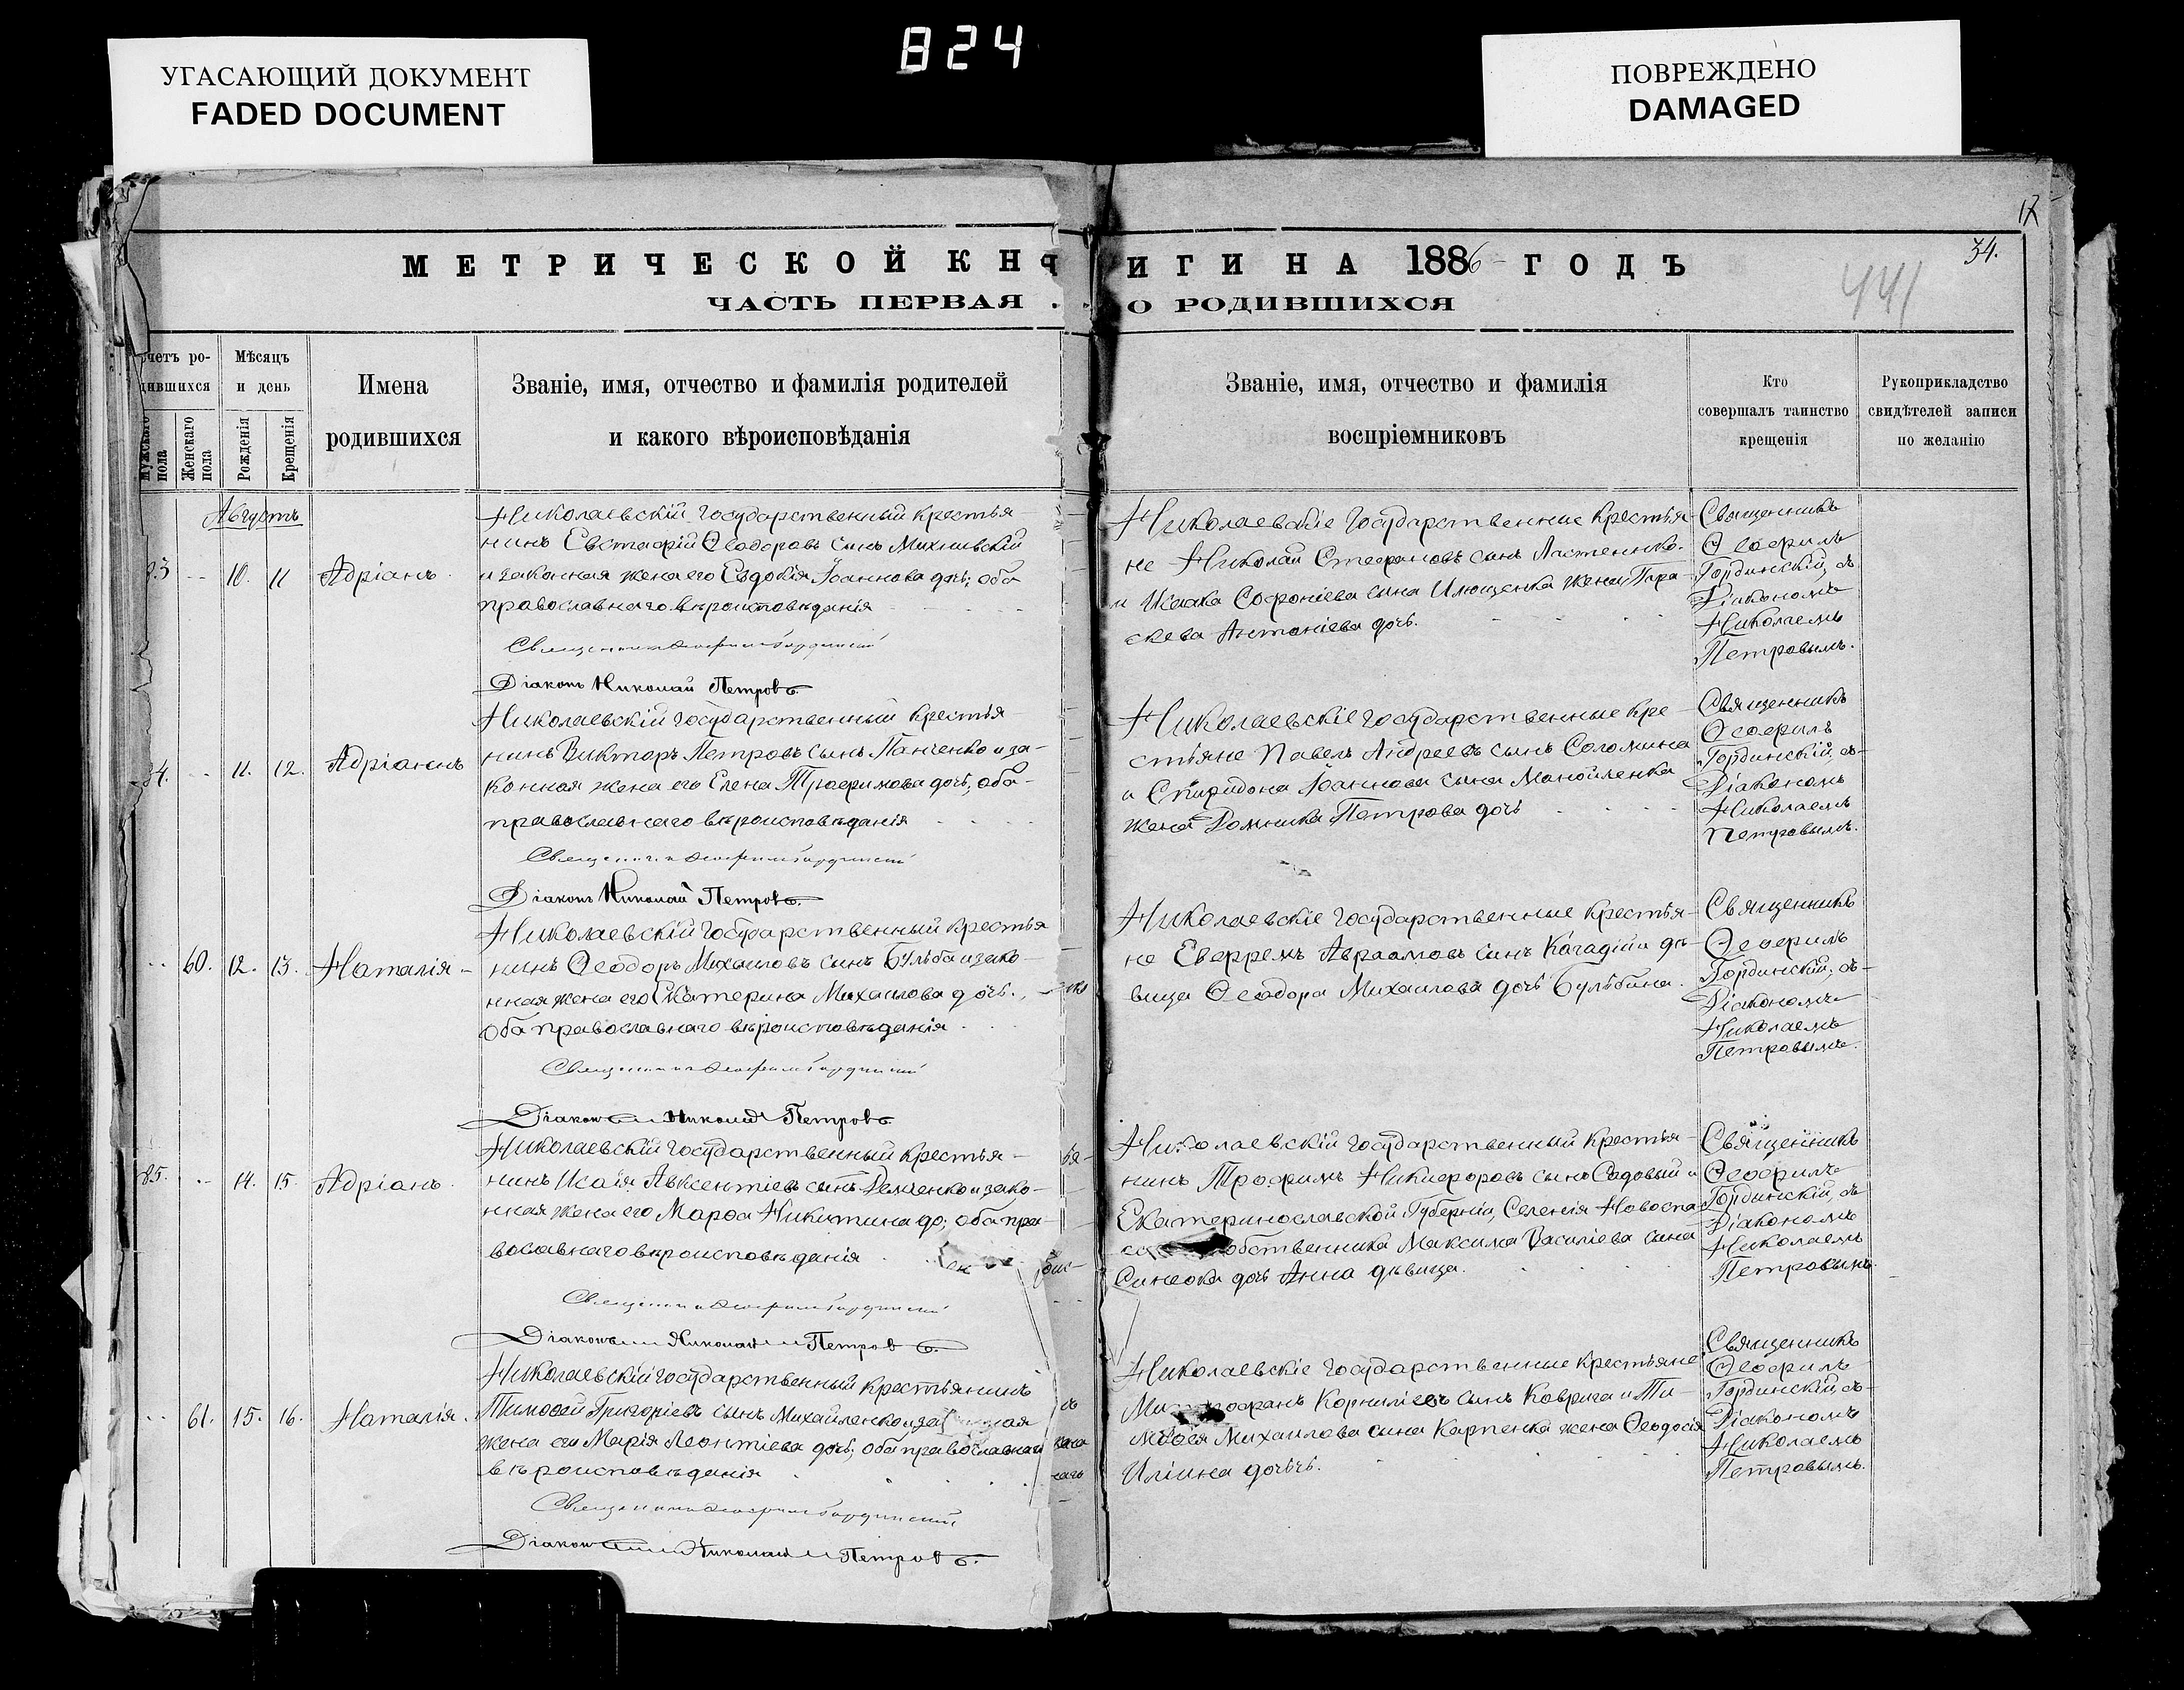 824
УГАСАЮЩИЙ ДОКУМЕНТ
FADED DOCUMENT
ПОВРЕЖДЕНО
DAMAGED
12
34.
441
МЕТРИЧЕСКОЙ КН
ИГИ НА 1886 ГОДЪ
ЧАСТЬ ПЕРВАЯ.
О РОДИВШИХСЯ
четъ ро-
дившихся
Мужскаго пола
Женскаго пола
Мѣсяцъ
и день
Рожденія
Крещенія
Имена
родившихся
Званіе, имя, отчество и фамилія родителей
и какого вѣроисповѣданія
Званіе, имя, отчество и фамилія
воспріемниковъ
Кто
совершалъ таинство
крещенія
Рукоприкладство
свидѣтелей записи
по желанію
Августъ
83 -- 10. 11 Адріанъ.
Николаевскій государственный крестья-
нинъ Евстафій Ѳеодоровъ сынъ
и законная жена его Евдокія Іоаннова дочь; оба
православнаго вѣроисповѣданія
Священникъ Ѳеофилъ Гординскій
Діаконъ Николай Петровъ.
Николаевскіе государственные крестья-
не Николай Стефановъ сынъ
и Исаака Софоніева сына Илющенка жена Пара-
скева Антоніева дочь.
Священникъ
Ѳеофилъ
Гординскій, съ
Діакономъ
Николаемъ
Петровымъ.
84. -- 11. 12. Адріанъ
Николаевскій государственный крестья-
нинъ Викторъ Петровъ сынъ Панченко и за-
конная жена его Елена Трофимова дочь; оба
православнаго вѣроисповѣданія
Священникъ Ѳеофилъ Гординскій
Діаконъ Николай Петровъ.
Николаевскіе государственные кре-
стьяне Павелъ Андреевъ сынъ Соломина
и Спиридона Іоаннова сына Манойленка
жена Домника Петрова дочь
Священникъ
Ѳеофилъ
Гординскій, съ
Діакономъ
Николаемъ
Петровымъ.
-- 60. 12. 13. Наталія
Николаевскій государственный крестья
нинъ Ѳеодоръ Михаиловъ сынъ Бульба и зако-
нная жена его Екатерина Михаилова дочь.,
оба православнаго вѣроисповѣданія
Священникъ Ѳеофилъ Гординскій
Діаконъ Николай Петровъ
Николаевскіе государственные крестья-
не Евфремъ Авраамовъ сынъ и дѣ-
вица Ѳеодора Михаилова дочь Бульбина.
Священникъ
Ѳеофилъ
Гординскій, съ
Діакономъ
Николаемъ
Петровымъ.
85. -- 14. 15. Адріанъ.
Николаевскій государственный крестья-
нинъ Исаія Авксентіевъ сынъ Демченко и зако-
нная жена его Марѳа Никитина до; оба пра-
вославнаго вѣроисповѣданія
Священникъ Ѳеофилъ Гординскій
Діаконъ Николай Петровъ.
Николаевскій государственный крестья-
нинъ Трофимъ Никифоровъ сынъ Садовый и
Екатеринославской Губерніи, Селенія Новоспа-
собственника Максима Василіева сына
Синеока дочь Анна дѣвица.
Священникъ
Ѳеофилъ
Гординскій, съ
Діакономъ
Николаемъ
Петровымъ.
-- 61. 15. 16. Наталія.
Николаевскій государственный крестьянинъ
Тимоѳей Григоріевъ сынъ Михайленко и за
жена его Марія Леонтіева дочь; оба православнаго
вѣроисповѣданія
Священникъ Ѳеофилъ Гординскій
Діаконъ Николай Петровъ.
Николаевскіе государственные крестьяне
Корниліевъ сынъ Коврига и Ти-
моѳея Михаилова сына Карпенка жена Ѳеодосія
Иліина дочь.
Священникъ
Ѳеофилъ
Гординскій съ
Діакономъ
Николаемъ
Петровымъ.